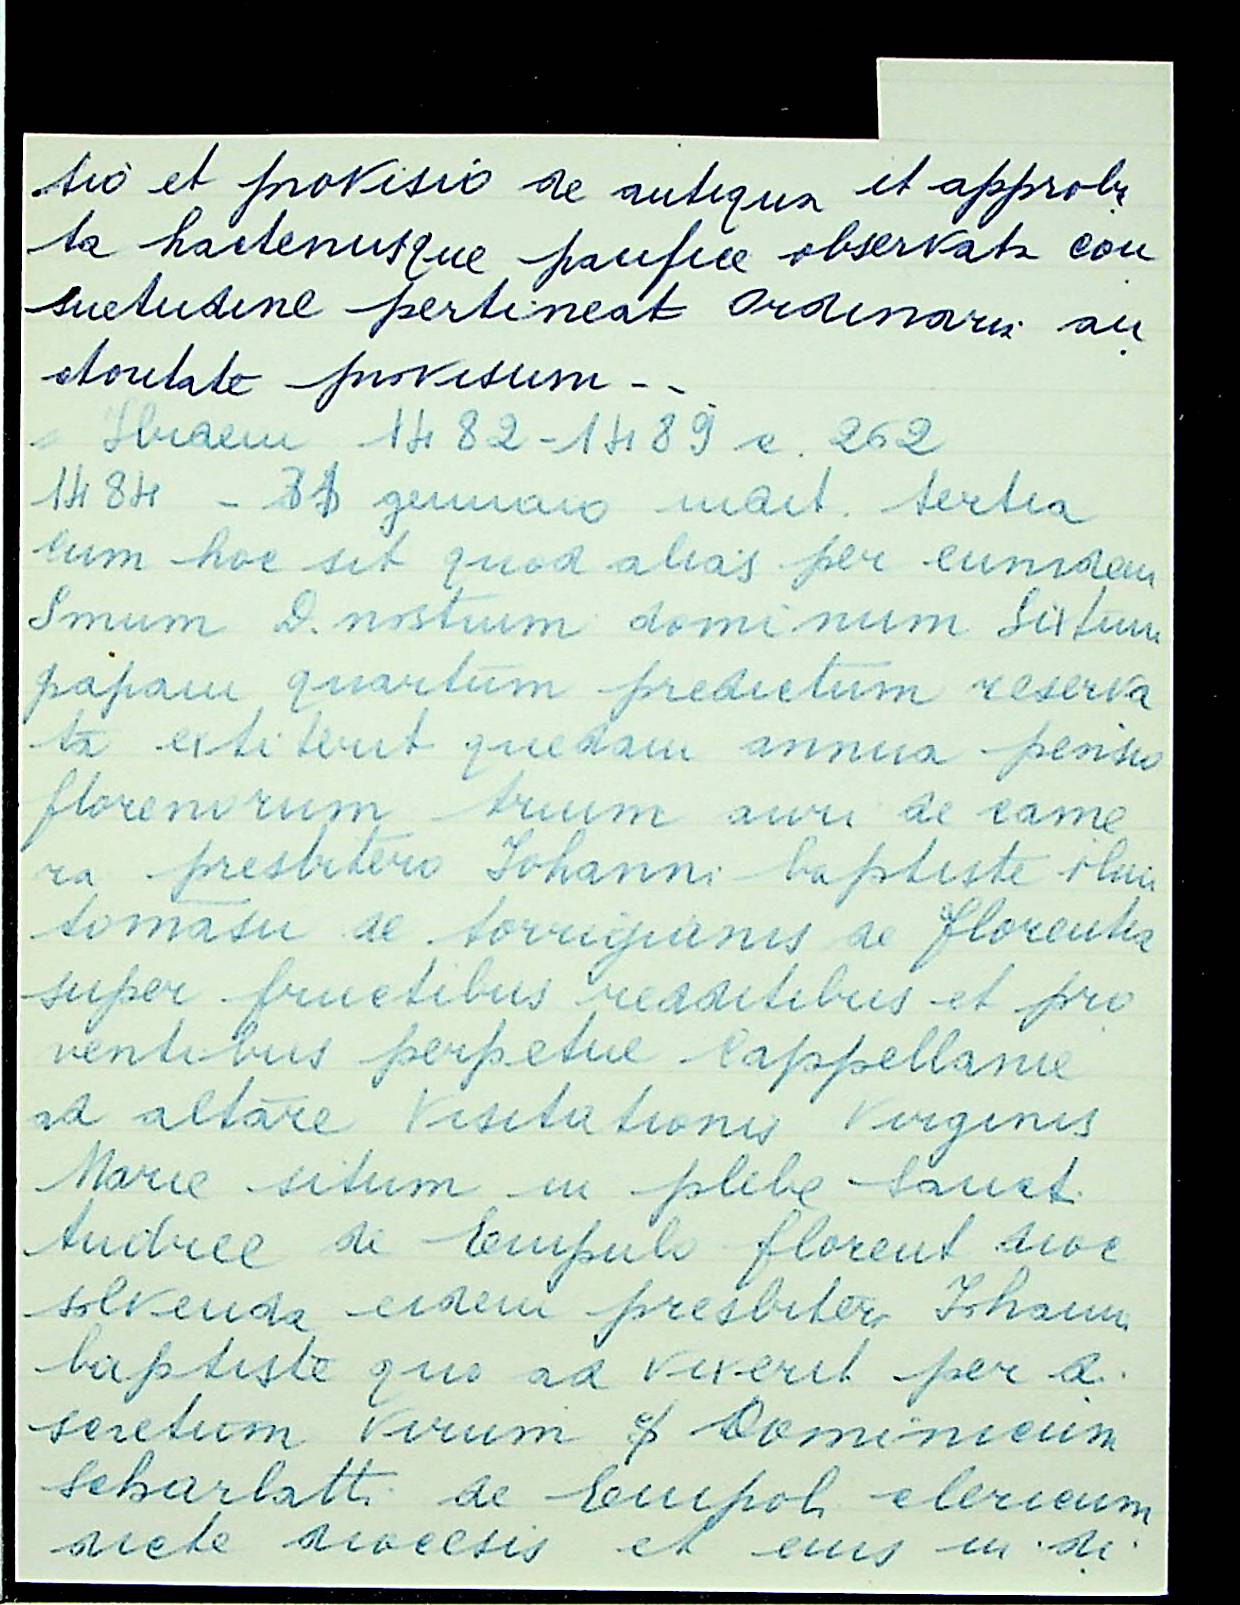 tio et provisio de antiqua et approba
ta hactenusque pacifice observata con
suetudine pertineat ordinaria au
ctoritate provisum - -
Ibidem 1482-1489 c. 262
1484 - gennaio indit. tertia
cum hoc sit quod alias per eumdem
Smum D. nostrum dominum Sixtum
papam quartum predictum reserva
ta extiterit quedam annua pensio
florenorum trium auri de came
ra presbitero Iohanni baptiste olim
tomasii de torrigianis de florentia
super fructibus redditibus et pro
ventibus perpetue Cappellanie
ad altare Visitationis Virginis
Marie situm in plebe Sanct.
Andree de Empulo florent dioc
solvenda eidem presbitero Iohanni
baptiste quo ad vixerit per di
scretum virum Dominicum
scharlatti de Empoli clericum
dicte diocesis et eius in di